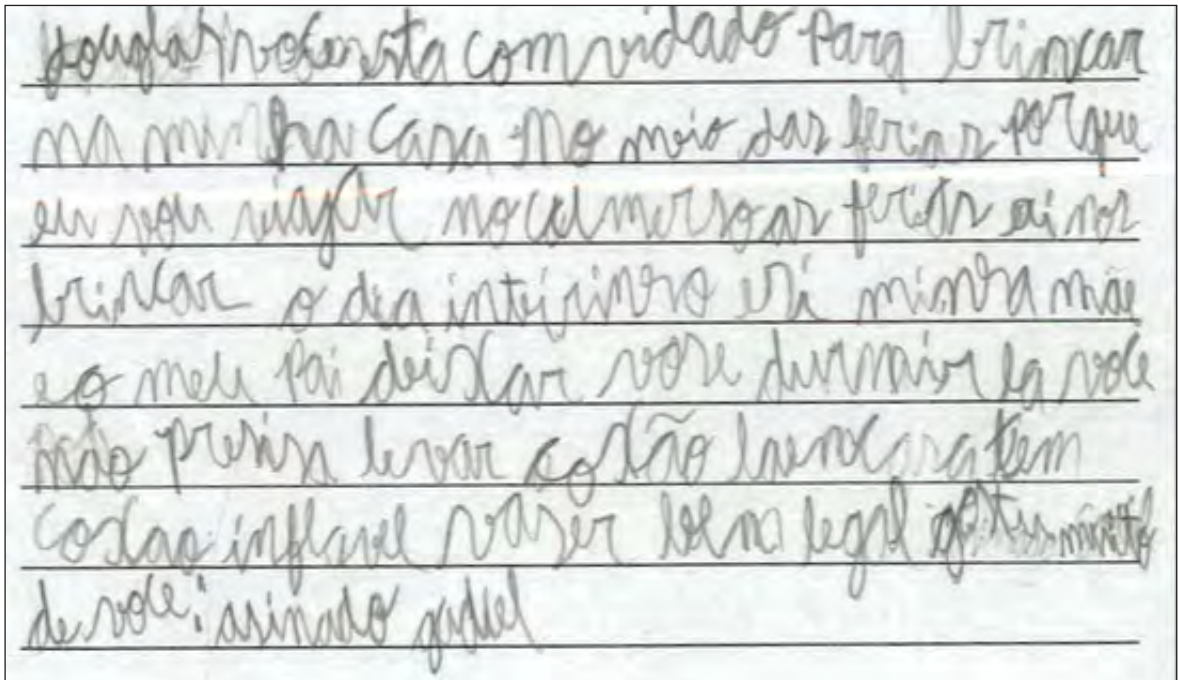 douglas você esta comvidado para brincar
na minha casa no meio das ferias porque
eu vou viajar no das ferias ai nos
brincar o dia inteirinho e si minha mãe
e o meu pai deixar vose durmir la voce
não presisa levar coxão la em casa tem
coxão inflavel vaser bem legal gostu muito
de voce: asinado